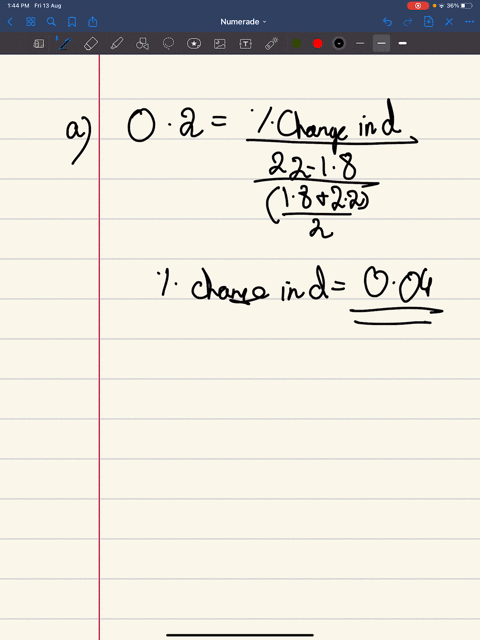 1:44 PM Fri 13 Aug 36%
Numerade
T
a) 0.2 = % Change in d
22-1.8
(1.8+2.2)
2
% change in d = 0.04